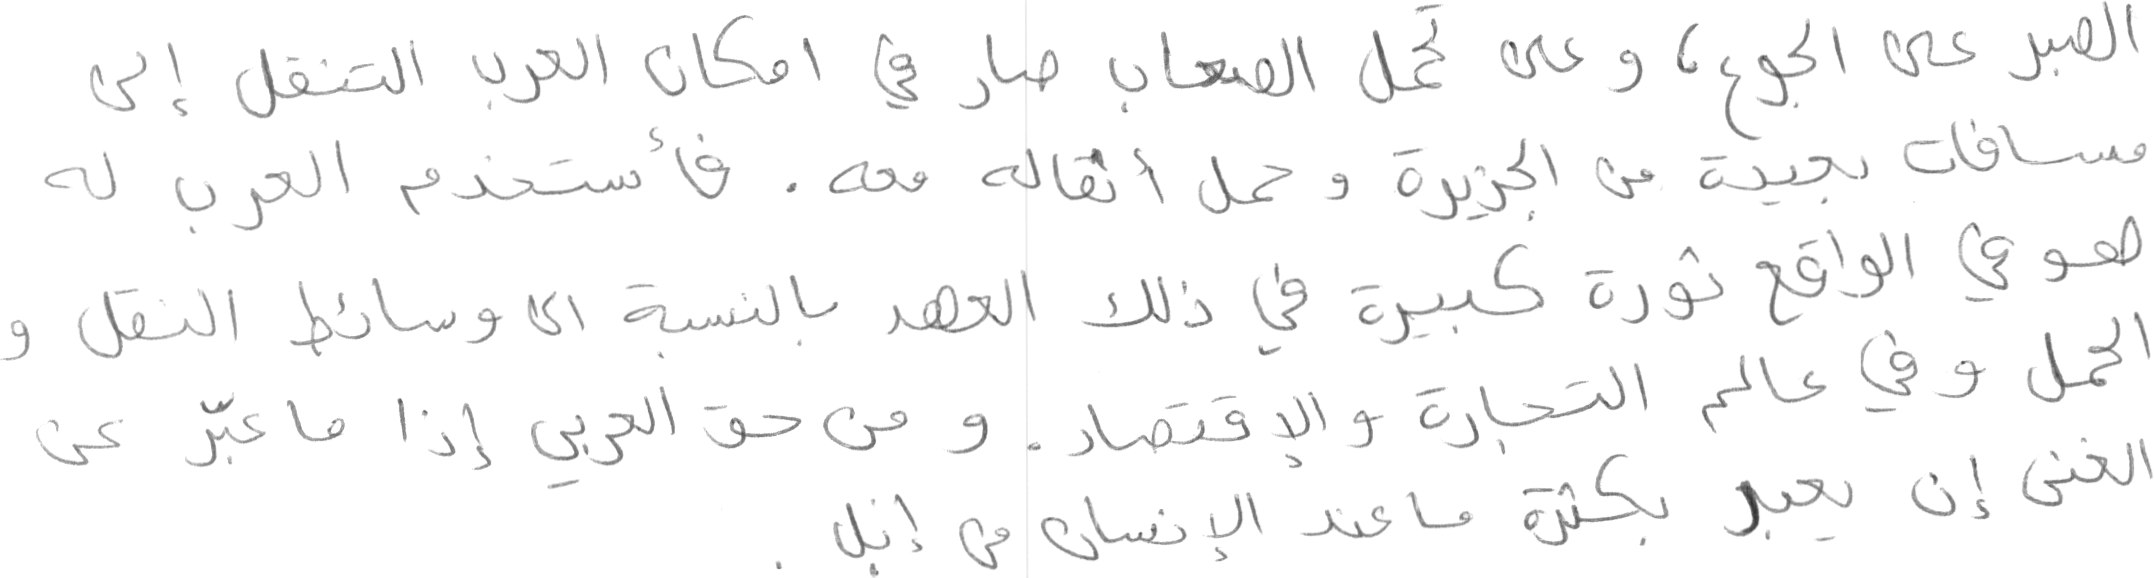 الصبر على الجوع، و على تحمل الصعاب صار في امكان العرب التنقل إلى
مسافات بعيدة من الجزيرة و حمل أثقاله معه. فأستخدم العرب له
هو في الواقع ثورة كبيرة في ذلك العهد بالنسبة الى وسائط النقل و
الحمل و في عالم التجارة والإقتصاد. و من حق العربي إذا ما عبّر عن
الغنى إن يعبر بكثرة ما عند الإنسان من إبل.